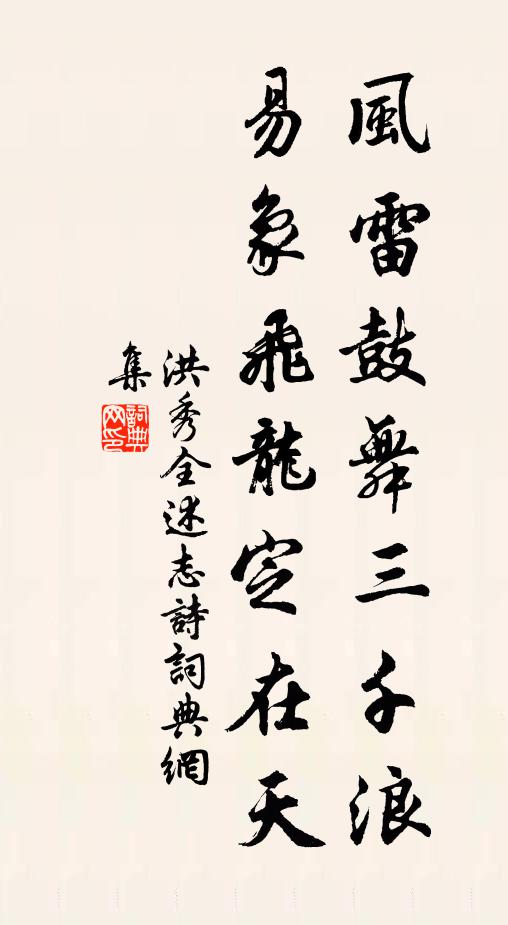 風雷鼓舞三千浪
易象飛龍定在天
洪秀全述志詩詞典網
集
詞典
网印